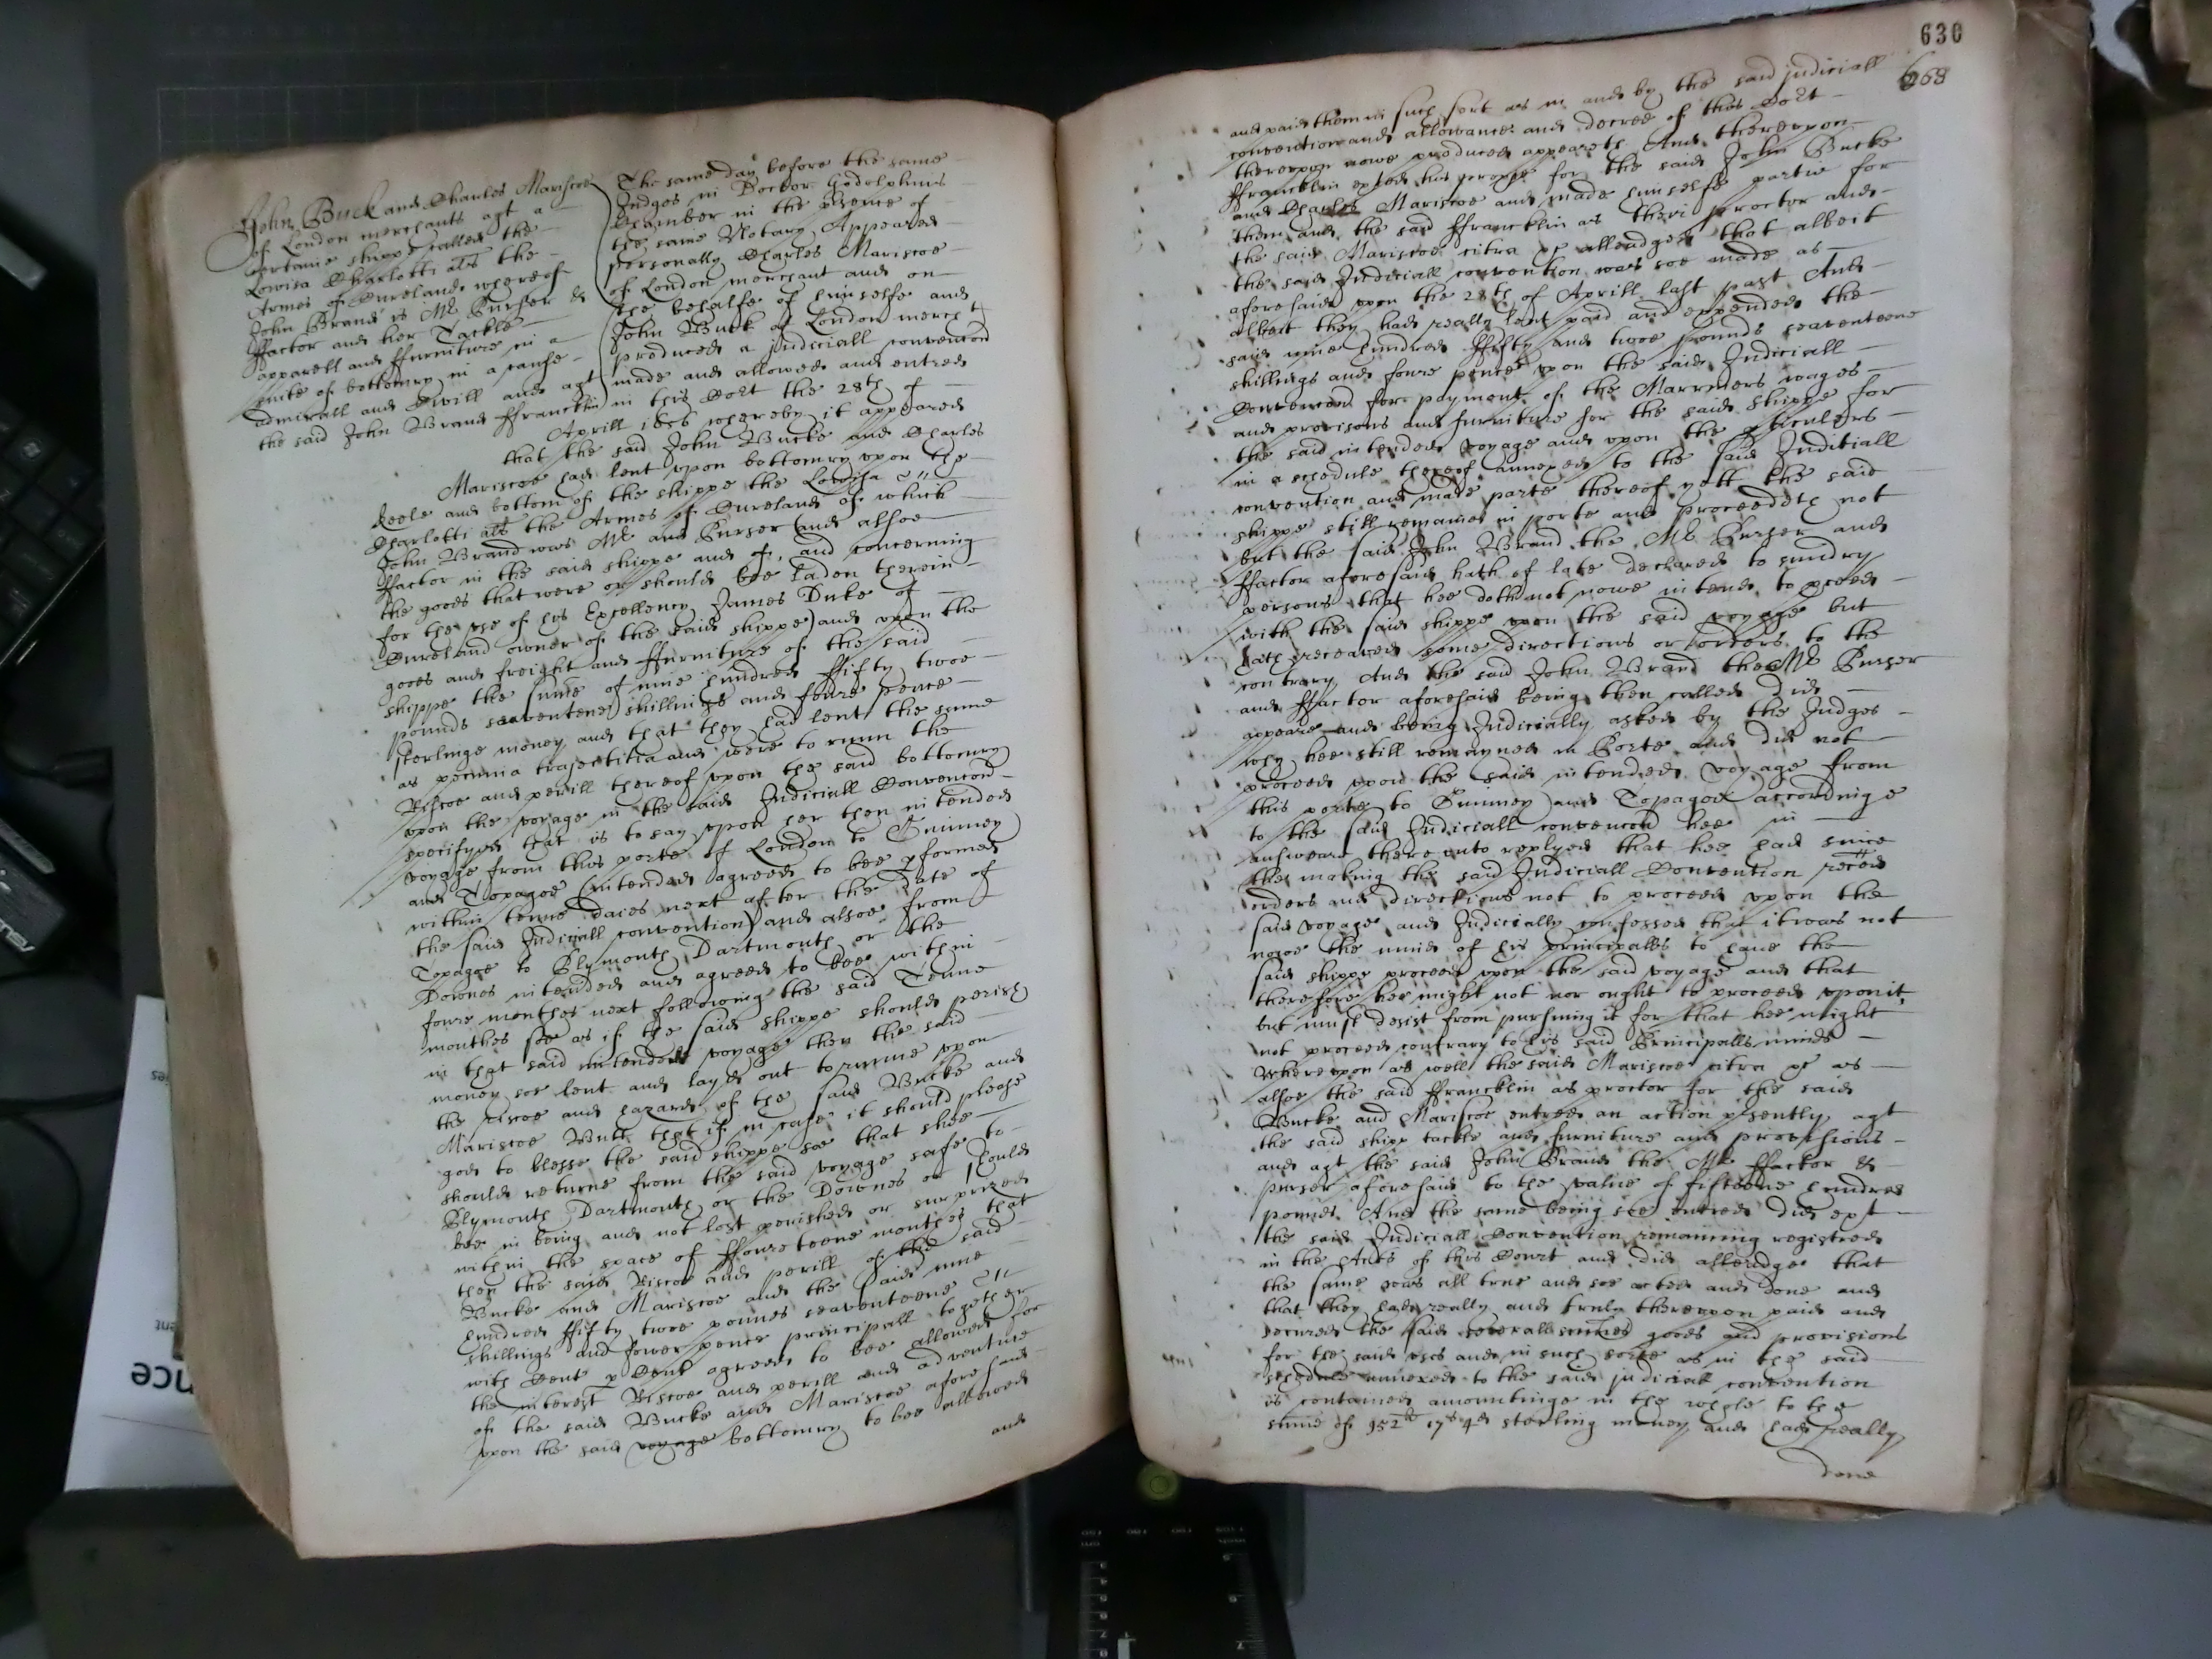 John Buck and Charles Mariscoe
of London merchants agt a
certaine shippe called the
Lowisa Charlotti als the
Armes of Cureland whereof
John Brand is Mr Purser &
ffactor and her Tackle
apparell and ffurniture in a
suite of bottomry in a cause
admirall and Civill and agt
the said John Brand ffrancklin
The same day before the same
Judges in Doctor Godolphins
Chamber in the psence of
the same Notary Appeared
personally Charles Mariscoe
of London merchant and on
the behalfe of himselfe and
John Buck of London mercht
produced a judiciall convencon
made and allowed and entred
in this Cort the 28th of
Aprill 1656 whereby it appeared
that the said John Bucke and Charles
Mariscoe had lent upon bottomry upon the
keele and bottom of the shippe the Lowisa
Charlotti als the Armes of Cureland of which
John Brand was Mr and Purser (and alsoe
ffactor in the said shippe and of, and concerning
the goods that were or should bee laden therein
for the use of his Excellency James Duke of
Cureland owner of the said shippe) and upon the
goods and freight and ffurniture of the said
shippe the sume of nine hundred ffifty twoe
pounds seaventene skillings and foure pence
sterlinge money and that they had lent the same
as pecunia trajectitia and were to runn the
Riscoe and perill thereof upon the said bottomry
upon the voyage in the said Judiciall Convencon
specifyed that is to say upon her then intended
voyage from this porte of London to Guinney
and Topagoe (intended agreed to bee pformed
within tenne daies next after the date of
the said Judiciall convention) and alsoe from
Topagoe to Plymouth Dartmouth or the
Downes intended and agreed to bee within
foure monthes next following the said Tenne
monthes soe as if the said shippe should perish
in that said intended voyage then the said
money soe lent and layd out to runne upon
the riscoe and hazard of the said Bucke and
Mariscoe Butt that if in case it should please
god to blesse the said shippe soe that shee
should returne from the said voyage safe to
Plymouth Dartmouth or the Downes or should
bee in being and not lost perished or surprized
within the space of ffoureteene monthes that
then the said Riscoe and perill of the said
Bucke and Mariscoe and the said nine
hundred ffifty twoe pounds seaventeene
skillings and fower pence principall together
with Cent p Cent agreed to bee allowed for
the interest Riscoe and perill and adventure
of the said Bucke and Mariscoe aforesaid
upon the said voyage bottomry to bee allowed
and
630
668
and paid them in such sort as in and by the said judiciall
convention and allowance and decree of this Cort
thereupon nowe produced appeareth And thereupon
ffrancklin exhibited his proxye for the said John Bucke
and Charles Mariscoe and made himselfe partie for
them and the said ffrancklin as their proctor and
the said Mariscoe citra &c alleadged that albeit
the said Judiciall convention was soe made as
aforesaid upon the 28th of Aprill last past And
albeit they had really lent paid and expended the
said nine hundred ffifty and twoe pounds seaventeene
skillings and foure pence upon the said Judiciall
Convencon for payment of the Marriners wages
and provisons and furniture for the said shippe for
the said intended voyage and upon the pticulers
in a schedule thereof annexed to the said Juditiall
convention and made parte thereof yett the said
shippe still remaines in porte and proceedeth not
but the said John Brand the Mr Purser and
ffactor aforesaid hath of late declared to sundry
persons that hee doth not nowe intend to pceed
with the said shippe upon the said voyage but
hath receaved some directions or orders to the
contrary And the said John Brand the Mr Purser
and ffactor aforesaid being then called did
appeare and being Judicially asked by the Judges
why hee still remayned in Porte and did not
proceed upon the said intended voyage from
this porte to Guinney and Topagoe accordinge
to the said Judiciall convencon hee in
answeare thereunto replyed that hee had since
the making the said Judiciall Convention
orders and directions not to proceed upon the
said voyage and Judicially confessed that it was not
nowe the minde of his principalls to have the
said shippe proceed upon the said voyage and that
therefore hee might not nor ought to proceed upon it,
but must desist from pursuing it for that hee might
not proceed contrary to his said Principalls minds
Whereupon as well the said Mariscoe citra &c as
alsoe the said ffrancklin as proctor for the said
Bucke and Mariscoe entred an action psently agt
the said shipp tackle and furniture and provisions
and agt the said John Brand the Mr ffactor &
purser aforesaid to the value of fifteene hundred
pounds And the same being soe entred did
the said Judiciall Convention remaining registred
in the Acts of this Court and did alleadge that
the same was all true and soe acted and done and
that they had really and truly thereupon paid and
secured the said severall sumes goods and provisions
for the said uses and in such sorte as in the said
schedule annexed to the said judiciall convention
is contained amountinge in the whole to the
sume of 952li 17s 4d sterling money and had really
done